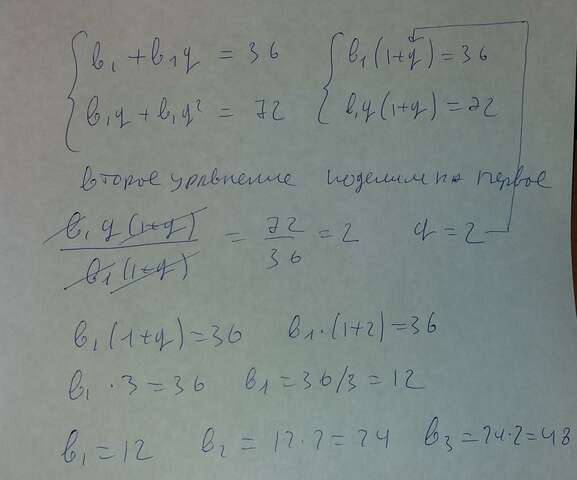 b₁ + b₁q = 36 b₁(1+q) = 36
b₁q + b₁q² = 72 b₁q(1+q) = 72
второе уравнение поделим на первое
b₁q(1+q) / b₁(1+q) = 72/36 = 2 q = 2
b₁(1+q) = 36 b₁·(1+2) = 36
b₁ · 3 = 36 b₁ = 36/3 = 12
b₁ = 12 b₂ = 12·2 = 24 b₃ = 24·2 = 48